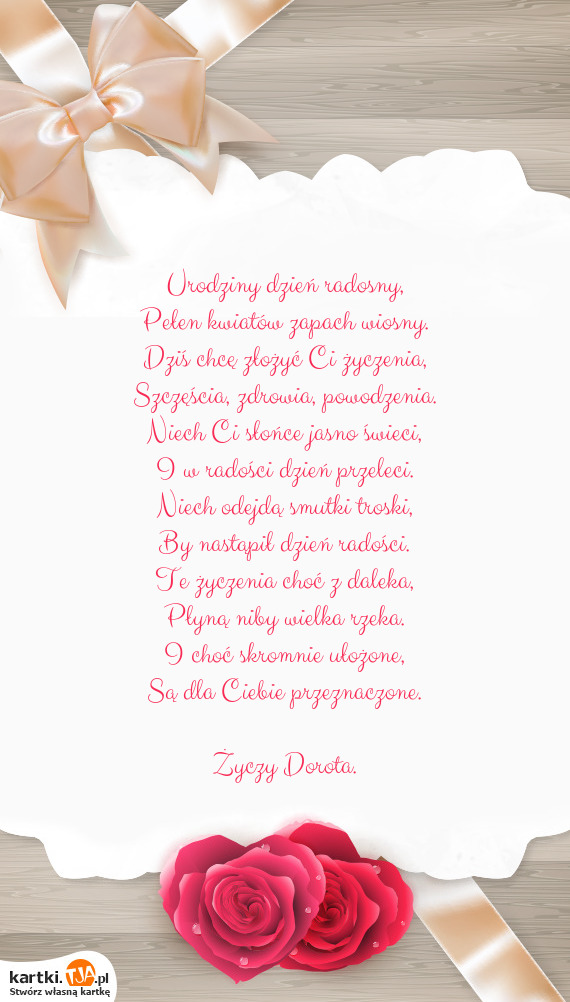 Urodziny dzień radosny,
Pełen kwiatów zapach wiosny.
Dziś chcę złożyć Ci życzenia,
Szczęścia, zdrowia, powodzenia.
Niech Ci słońce jasno świeci,
I w radości dzień przeleci.
Niech odejdą smutki troski,
By nastąpił dzień radości.
Te życzenia choć z daleka,
Płyną niby wielka rzeka.
I choć skromnie ułożone,
Są dla Ciebie przeznaczone.
Życzy Dorota.
kartki.TJA.pl
Stwórz własną kartkę